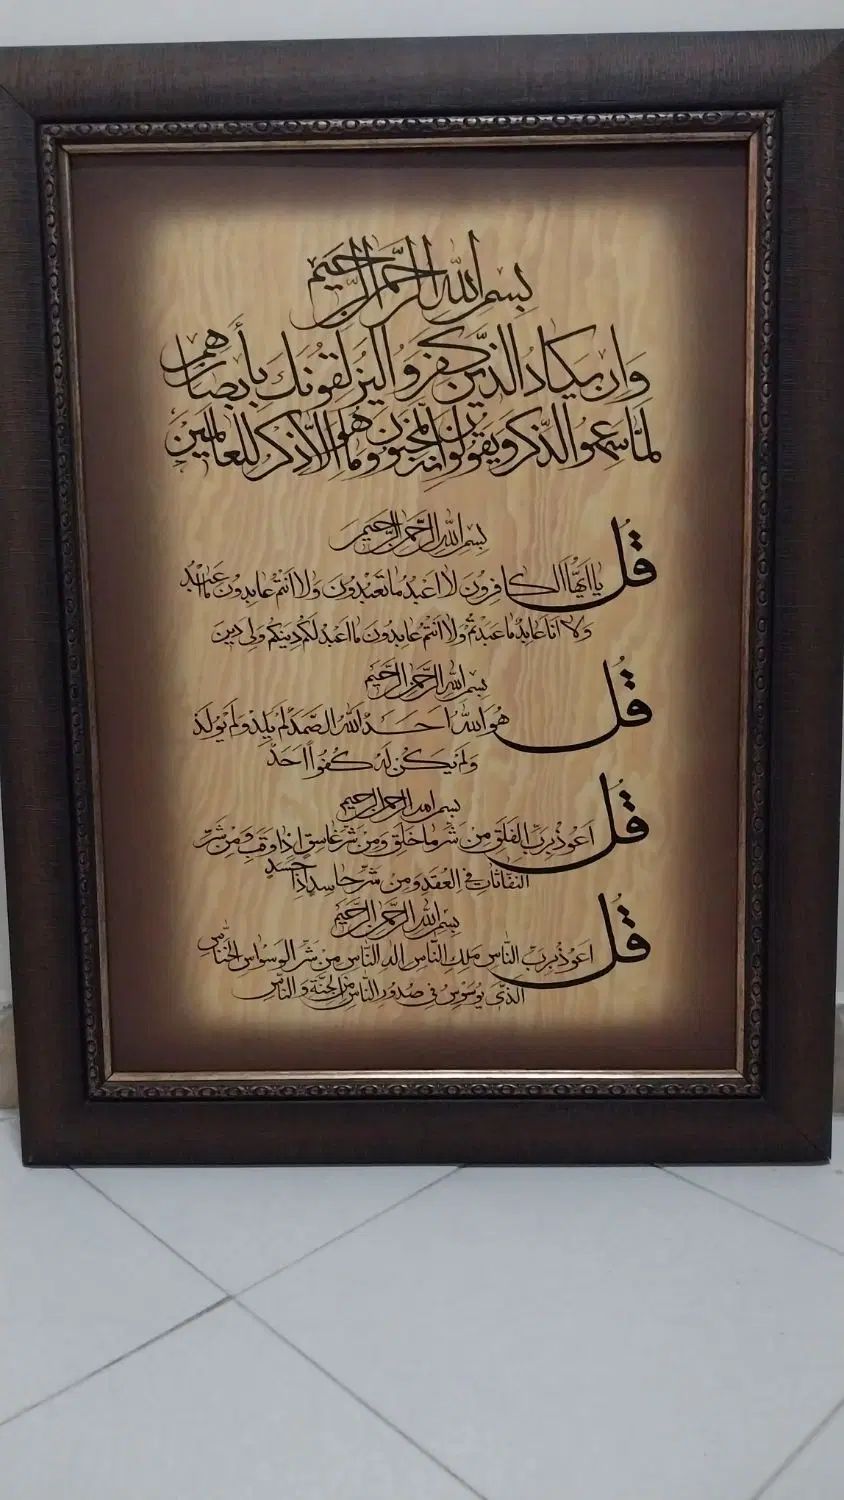 بسم الله الرحمن الرحيم
وان يكاد الذين كفروا ليزلقونك بأبصارهم
لما سمعوا الذكر ويقولون انه لمجنون وما هو الا ذكر للعالمين
بسم الله الرحمن الرحيم
قل يا ايها الكافرون لا اعبد ما تعبدون ولا انتم عابدون ما اعبد
ولا انا عابد ما عبدتم ولا انتم عابدون ما اعبد لكم دينكم ولي دين
بسم الله الرحمن الرحيم
قل هو الله احد الله الصمد لم يلد ولم يولد
ولم يكن له كفوا احد
بسم الله الرحمن الرحيم
قل اعوذ برب الفلق من شر ما خلق ومن شر غاسق اذا وقب ومن شر
النفاثات في العقد ومن شر حاسد اذا حسد
بسم الله الرحمن الرحيم
قل اعوذ برب الناس ملك الناس اله الناس من شر الوسواس الخناس
الذي يوسوس في صدور الناس من الجنة والناس